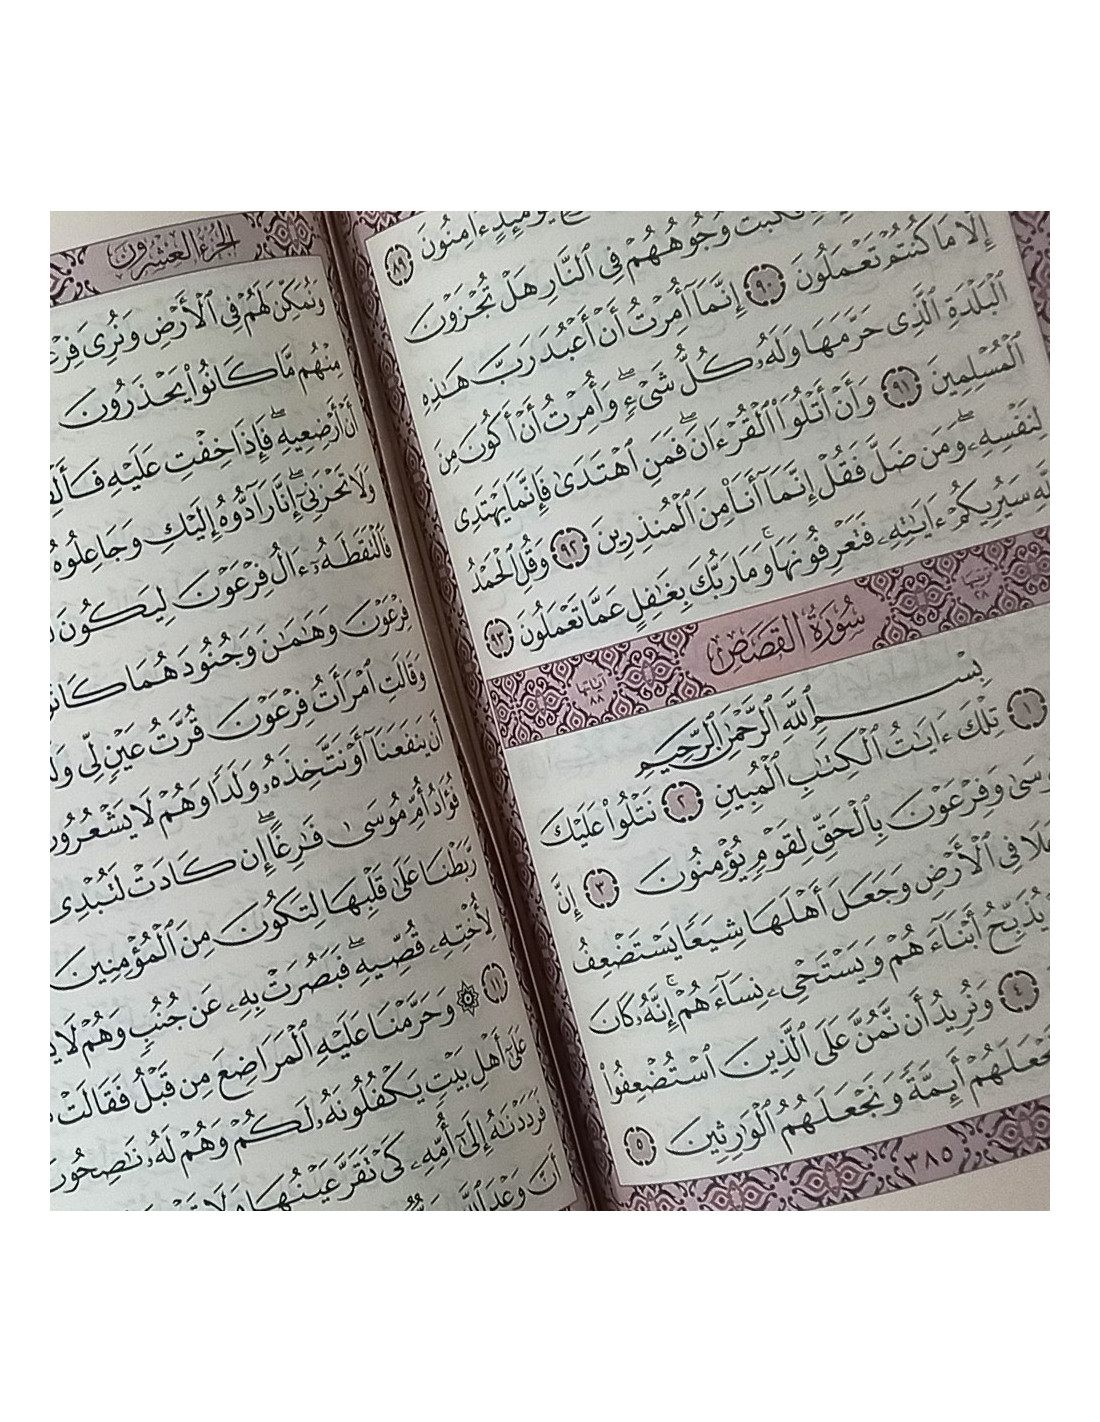 يَوْمَئِذٍ ءَامِنُونَ ٨٩
فَكُبَّتْ وُجُوهُهُمْ فِى ٱلنَّارِ هَلْ تُجْزَوْنَ
إِلَّا مَا كُنتُمْ تَعْمَلُونَ ٩٠ إِنَّمَآ أُمِرْتُ أَنْ أَعْبُدَ رَبَّ هَٰذِهِ
ٱلْبَلْدَةِ ٱلَّذِى حَرَّمَهَا وَلَهُۥ كُلُّ شَىْءٍ ۖ وَأُمِرْتُ أَنْ أَكُونَ مِنَ
ٱلْمُسْلِمِينَ ٩١ وَأَنْ أَتْلُوَا۟ ٱلْقُرْءَانَ ۖ فَمَنِ ٱهْتَدَىٰ فَإِنَّمَا يَهْتَدِى
لِنَفْسِهِۦ ۖ وَمَن ضَلَّ فَقُلْ إِنَّمَآ أَنَا۠ مِنَ ٱلْمُنذِرِينَ ٩٢ وَقُلِ ٱلْحَمْدُ
سَيُرِيكُمْ ءَايَٰتِهِۦ فَتَعْرِفُونَهَا ۚ وَمَا رَبُّكَ بِغَٰفِلٍ عَمَّا تَعْمَلُونَ ٩٣
سُورَةُ القَصَصِ
آياتها ٨٨
ترتيبها ٢٨
بِسْمِ ٱللَّهِ ٱلرَّحْمَٰنِ ٱلرَّحِيمِ
١ تِلْكَ ءَايَٰتُ ٱلْكِتَٰبِ ٱلْمُبِينِ ٢ نَتْلُوا۟ عَلَيْكَ
وَفِرْعَوْنَ بِٱلْحَقِّ لِقَوْمٍ يُؤْمِنُونَ ٣ إِنَّ
فِى ٱلْأَرْضِ وَجَعَلَ أَهْلَهَا شِيَعًا يَسْتَضْعِفُ
يُذَبِّحُ أَبْنَآءَهُمْ وَيَسْتَحْىِۦ نِسَآءَهُمْ ۚ إِنَّهُۥ كَانَ
٤ وَنُرِيدُ أَن نَّمُنَّ عَلَى ٱلَّذِينَ ٱسْتُضْعِفُوا۟
أَئِمَّةً وَنَجْعَلَهُمُ ٱلْوَٰرِثِينَ ٥
٣٨٥
الجُزْءُ العِشْرُونَ
وَنُمَكِّنَ لَهُمْ فِى ٱلْأَرْضِ وَنُرِىَ
مِنْهُم مَّا كَانُوا۟ يَحْذَرُونَ
أَنْ أَرْضِعِيهِ ۖ فَإِذَا خِفْتِ عَلَيْهِ
وَلَا تَحْزَنِىٓ ۖ إِنَّا رَآدُّوهُ إِلَيْكِ وَجَاعِلُوهُ
فَٱلْتَقَطَهُۥٓ ءَالُ فِرْعَوْنَ لِيَكُونَ
فِرْعَوْنَ وَهَٰمَٰنَ وَجُنُودَهُمَا
وَقَالَتِ ٱمْرَأَتُ فِرْعَوْنَ قُرَّتُ عَيْنٍ لِّى
أَن يَنفَعَنَآ أَوْ نَتَّخِذَهُۥ وَلَدًا وَهُمْ لَا يَشْعُرُونَ
فُؤَادُ أُمِّ مُوسَىٰ فَٰرِغًا ۖ إِن كَادَتْ لَتُبْدِى
رَّبَطْنَا عَلَىٰ قَلْبِهَا لِتَكُونَ مِنَ ٱلْمُؤْمِنِينَ
لِأُخْتِهِۦ قُصِّيهِ ۖ فَبَصُرَتْ بِهِۦ عَن جُنُبٍ وَهُمْ
١١ ۞ وَحَرَّمْنَا عَلَيْهِ ٱلْمَرَاضِعَ مِن قَبْلُ فَقَالَتْ
عَلَىٰٓ أَهْلِ بَيْتٍ يَكْفُلُونَهُۥ لَكُمْ وَهُمْ لَهُۥ نَٰصِحُونَ
فَرَدَدْنَٰهُ إِلَىٰٓ أُمِّهِۦ كَىْ تَقَرَّ عَيْنُهَا وَلَا
أَنَّ وَعْدَ ٱللَّهِ